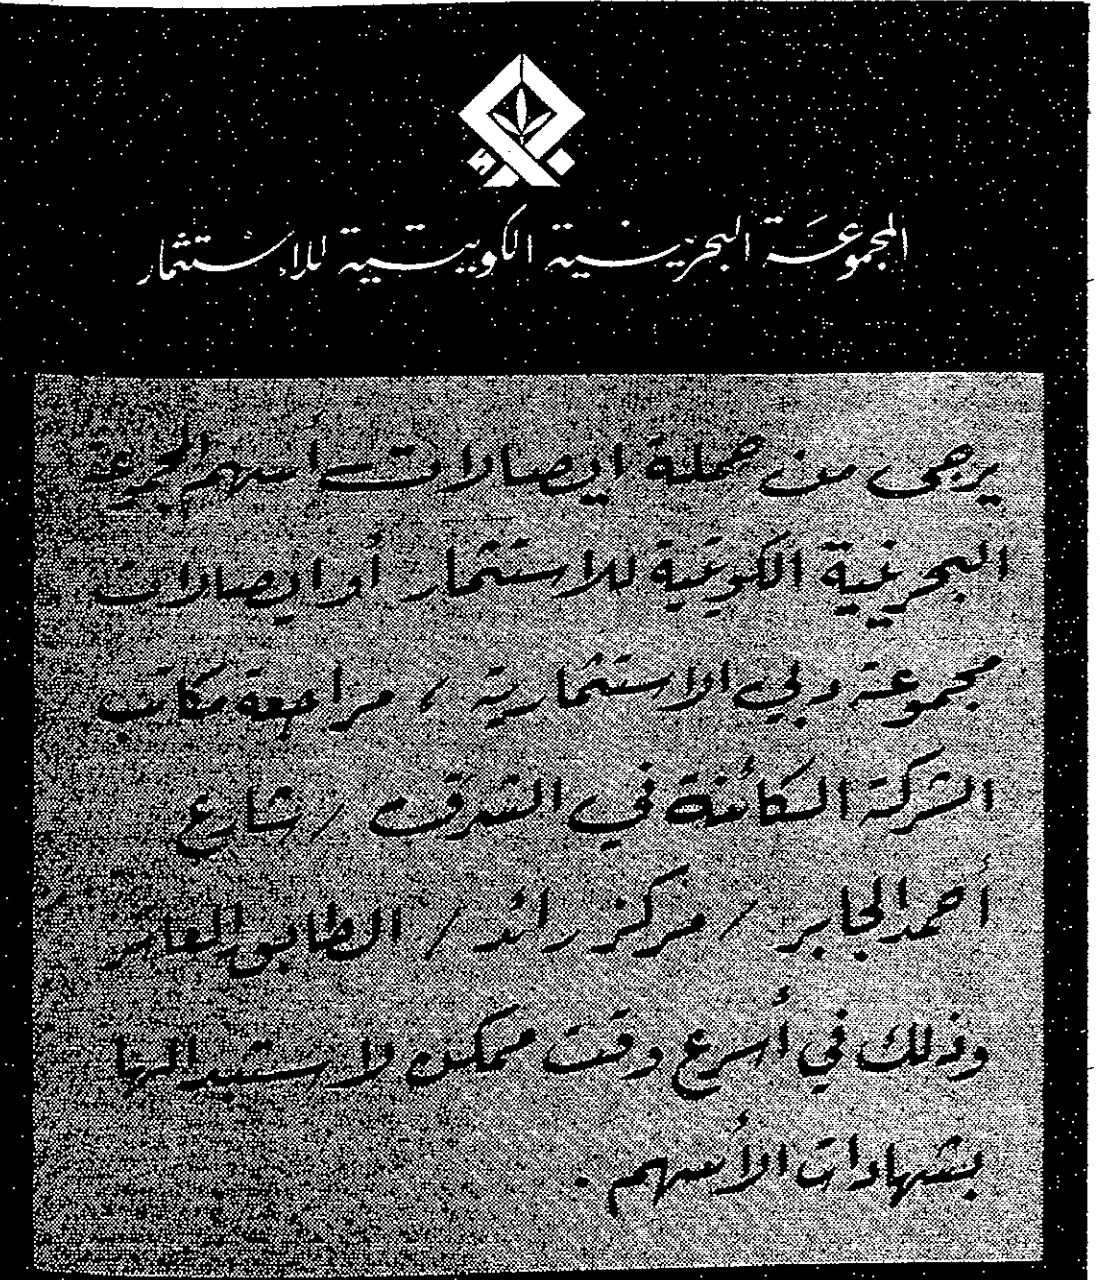 المجموعة البحرينية الكويتية للاستثمار
يرجى من حملة ايصالات أسهم المجموعة
البحرينية الكويتية للاستثمار أو ايصالات
مجموعة دبي الاستثمارية ، مراجعة مكاتب
الشركة الكائنة في الشرق / شارع
أحمد الجابر / مركز رائد / الطابق العاشر
وذلك في أسرع وقت ممكن لاستبدالها
بشهادات الأسهم .